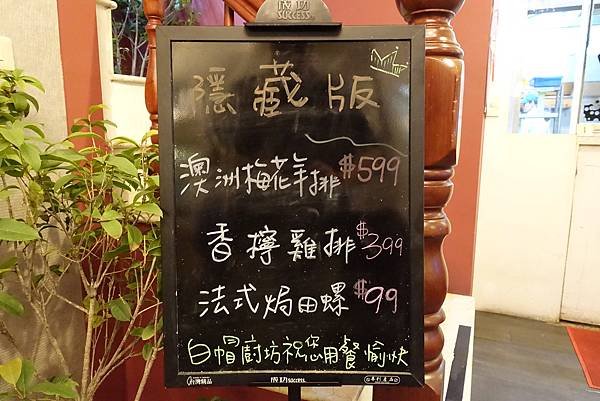 成功
SUCCESS
隱藏版
澳洲梅花羊排 $599
香檸雞排 $399
法式焗田螺 $99
白帽廚坊祝您用餐愉快
台灣精品 成功 SUCCESS.